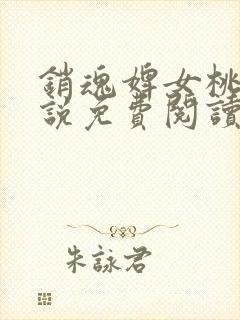 銷魂婢女桃
說免費閱讀
朱詠君